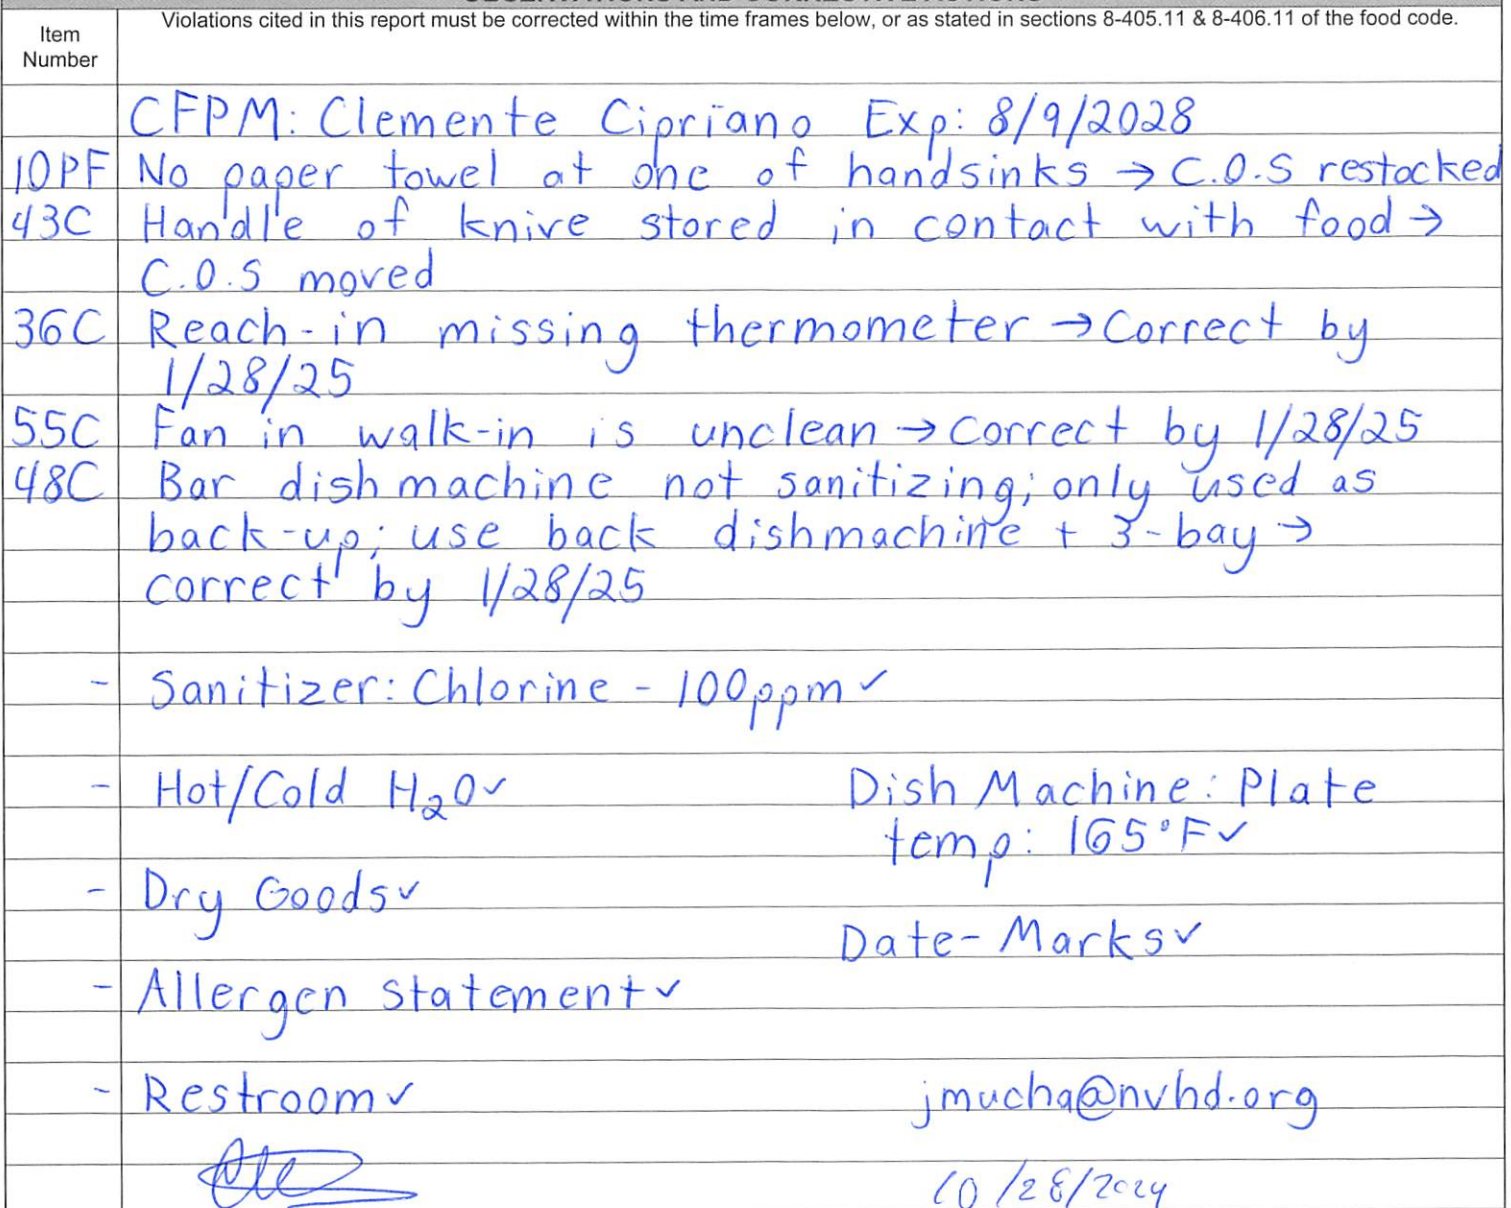 Violations cited in this report must be corrected within the time frames below, or as stated in sections 8-405.11 & 8-406.11 of the food code.
Item
Number
CFPM: Clemente Cipriano Exp: 8/9/2028
10PF No paper towel at one of handsinks → C.O.S restocked
43C Handle of knive stored in contact with food →
C.O.S moved
36C Reach-in missing thermometer → Correct by
1/28/25
55C Fan in walk-in is unclean → Correct by 1/28/25
48C Bar dish machine not sanitizing; only used as
back-up; use back dishmachine + 3-bay →
correct by 1/28/25
- Sanitizer: Chlorine - 100ppm ✓
- Hot/Cold H₂O ✓ Dish Machine: Plate
temp: 165°F ✓
- Dry Goods ✓
Date-Marks ✓
- Allergen statement ✓
- Restroom ✓ jmucha@nvhd.org
10/28/2024